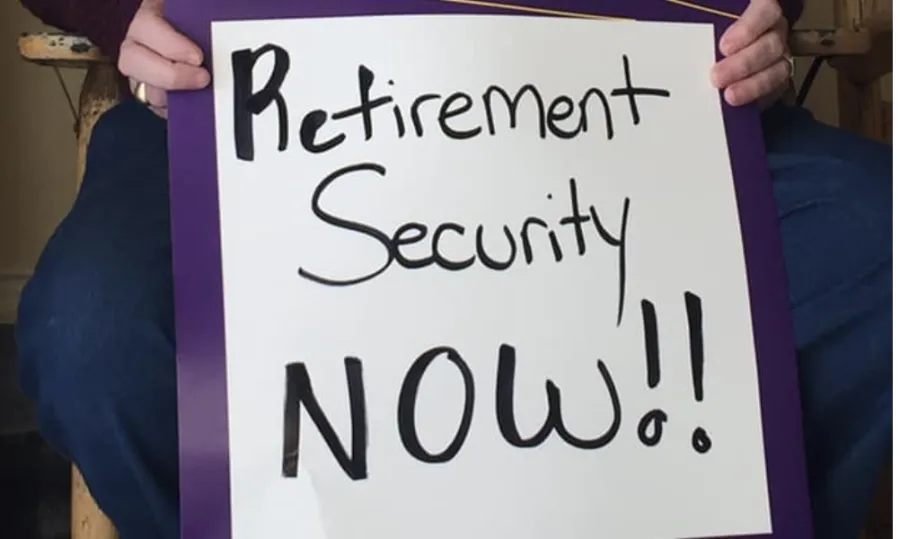 Retirement
Security
NOW!!